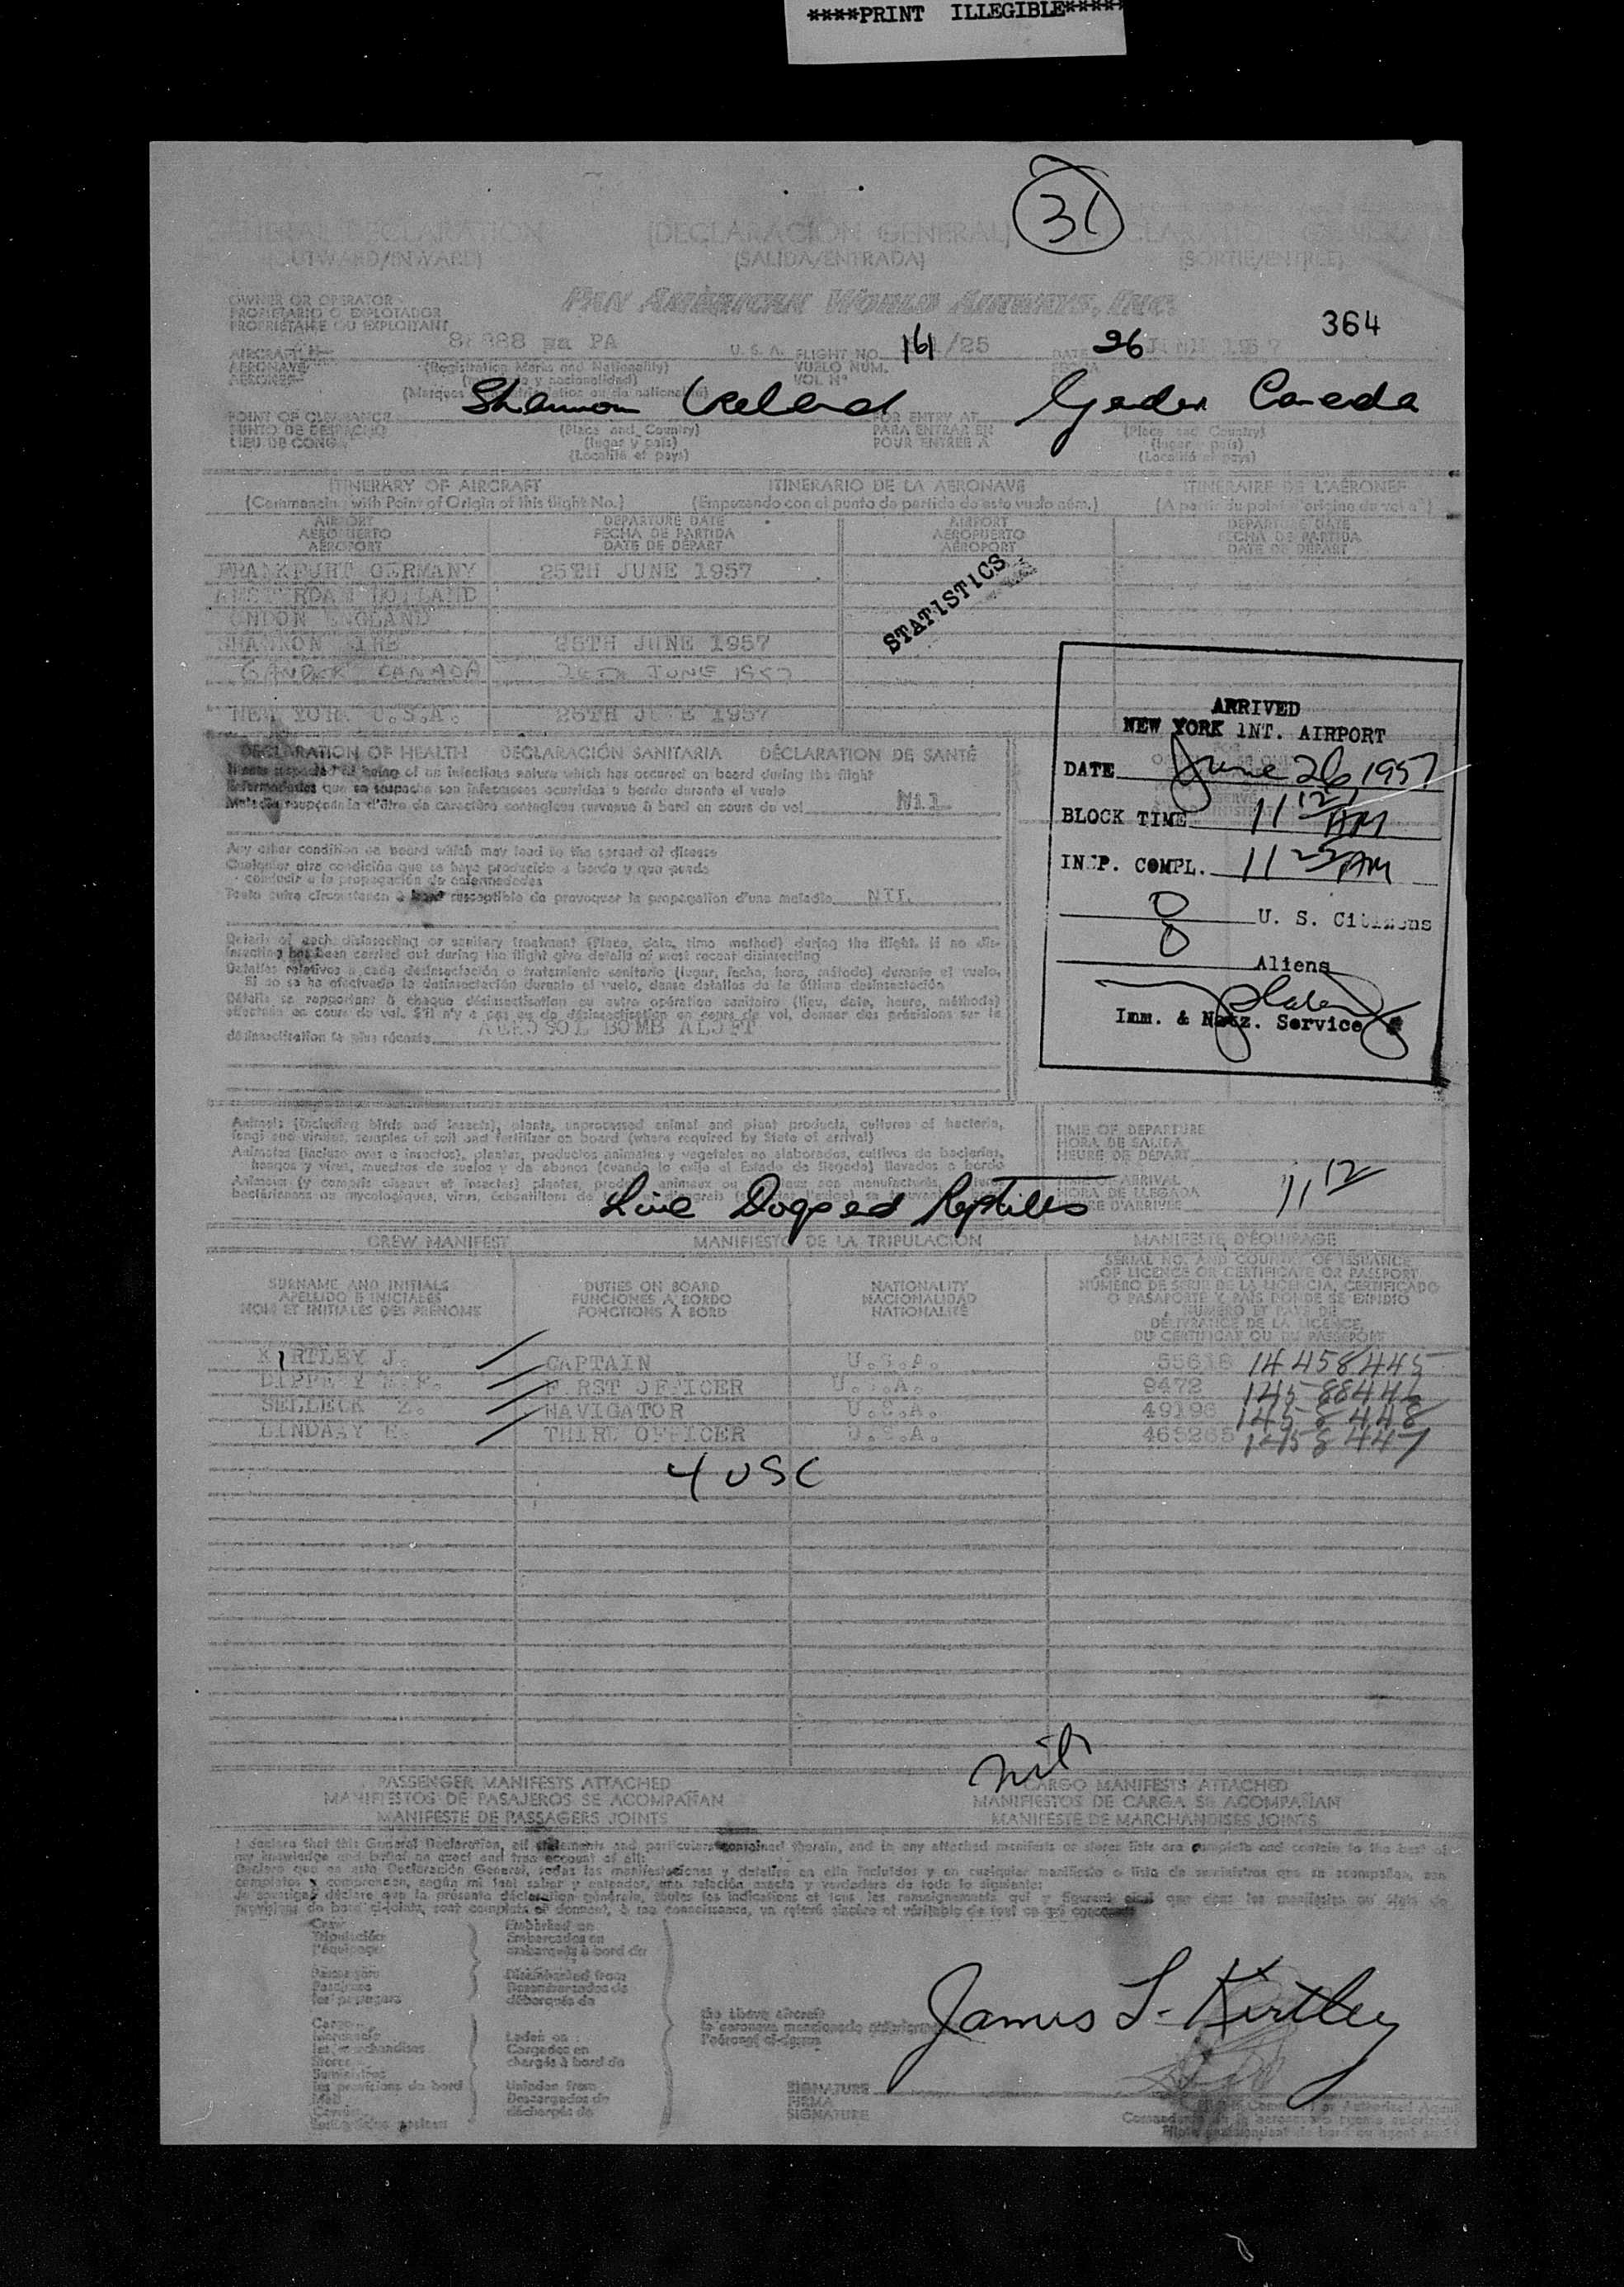 ****PRINT ILLEGIBLE****
31
GENERAL DECLARATION (DECLARACIÓN GENERAL) DECLARATION GENERALE
(OUTWARD/INWARD) (SALIDA/ENTRADA) (SORTIE/ENTRÉE)
OWNER OR OPERATOR
PROPIETARIO O EXPLOTADOR
PROPRIÉTAIRE OU EXPLOITANT
PAN AMERICAN WORLD AIRWAYS, INC.
364
PA U. S. A. FLIGHT NO. 161/25 DATE 26
AERONAVE (Registration Marks and Nationality) VUELO NÚM.
VOL Nº
Shannon Ireland Gander Canada
POINT OF CLEARANCE FOR ENTRY AT
PUNTO DE DESPACHO (Place and Country) PARA ENTRAR EN (Place and Country)
LIEU DE CONGÉ (lugar y país) POUR ENTRÉE À (lugar y país)
(Localité et pays) (Localité et pays)
ITINERARY OF AIRCRAFT ITINERARIO DE LA AERONAVE ITINÉRAIRE DE L'AÉRONEF
(Commencing with Point of Origin of this flight No.) (Empezando con el punto de partida de este vuelo núm.) (A partir du point d'origine du vol nº)
AIRPORT DEPARTURE DATE AIRPORT DEPARTURE DATE
AEROPUERTO FECHA DE PARTIDA AEROPUERTO FECHA DE PARTIDA
AÉROPORT DATE DE DÉPART AÉROPORT DATE DE DÉPART
FRANKFURT GERMANY 25TH JUNE 1957
STATISTICS
AMSTERDAM HOLLAND
LONDON ENGLAND
SHANNON EIRE 26TH JUNE 1957
GANDER CANADA JUNE 1957
NEW YORK U.S.A. 26TH JUNE 1957
ARRIVED
NEW YORK INT. AIRPORT
DATE June 26, 1957
BLOCK TIME 11 12 AM
INSP. COMPL. 11 25 AM
0 U. S. Citizens
0 Aliens
Imm. & Natz. Service
DECLARATION OF HEALTH DECLARACIÓN SANITARIA DÉCLARATION DE SANTÉ
Illness suspected of being of an infectious nature which has occured on board during the flight
Enfermedades que se sospecha son infecciosas ocurridas a bordo durante el vuelo
Maladie soupçonnée d'être de caractère contagieux survenue à bord en cours de vol Nil
Any other condition on board which may lead to the spread of disease
Cualquier otra condición que se haya producido a bordo y que pueda
conducir a la propagación de enfermedades
Toute autre circonstance à bord susceptible de provoquer la propagation d'une maladie NIL
Details of each disinsecting or sanitary treatment (Place, date, time method) during the flight. If no dis-
insecting has been carried out during the flight give details of most recent disinsecting
Detalles relativos a cada desinsectación o tratamiento sanitario (lugar, fecha, hora, método) durante el vuelo.
Si no se ha efectuado la desinsectación durante el vuelo, danse detalles de la última desinsectación
Détails se rapportant à chaque désinsectisation ou autre opération sanitaire (lieu, date, heure, méthode)
effectuée en cours de vol. S'il n'y a pas eu de désinsectisation en cours de vol, donner des précisions sur la
désinsectisation la plus récente AEROSOL BOMB ALOFT
Animals (including birds and insects), plants, unprocessed animal and plant products, cultures of bacteria,
fungi and viruses, samples of soil and fertilizer on board (where required by State of arrival)
Animales (incluso aves e insectos), plantas, productos animales y vegetales no elaborados, cultivos de bacterias,
hongos y virus, muestras de suelos y de abonos (cuando lo exija el Estado de llegada) llevados a bordo
Live Dogs ed Reptiles
TIME OF DEPARTURE
HORA DE SALIDA
HEURE DE DÉPART
TIME OF ARRIVAL
HORA DE LLEGADA 11 12
HEURE D'ARRIVÉE
CREW MANIFEST MANIFIESTO DE LA TRIPULACIÓN MANIFESTE D'ÉQUIPAGE
SURNAME AND INITIALS DUTIES ON BOARD NATIONALITY SERIAL NO. AND COUNTRY OF ISSUANCE
APELLIDO E INICIALES FUNCIONES A BORDO NACIONALIDAD OF LICENCE OR CERTIFICATE OR PASSPORT
NOM ET INITIALES DES PRÉNOMS FONCTIONS À BORD NATIONALITÉ NÚMERO DE SERIE DE LA LICENCIA, CERTIFICADO
O PASAPORTE Y PAÍS DONDE SE EXPIDIÓ
NUMÉRO ET PAYS DE
DÉLIVRANCE DE LA LICENCE,
DU CERTIFICAT OU DU PASSEPORT
KIRTLEY J. CAPTAIN U.S.A. 14458445
FIRST OFFICER U.S.A. 9472
SELLECK Z. NAVIGATOR U.S.A. 49196 1458448
LINDAAY THIRD OFFICER U.S.A. 465265 1458447
4 USC
nil
PASSENGER MANIFESTS ATTACHED CARGO MANIFESTS ATTACHED
MANIFIESTOS DE PASAJEROS SE ACOMPAÑAN MANIFIESTOS DE CARGA SE ACOMPAÑAN
MANIFESTE DE PASSAGERS JOINTS MANIFESTE DE MARCHANDISES JOINTS
I declare that this General Declaration, all statements and particulars contained therein, and in any attached manifests or stores lists are complete and contain to the best of
my knowledge and belief an exact and true account of all:
Declaro que en esta Declaración General, todas las manifestaciones y detalles en ella incluidos y en cualquier manifiesto o lista de suministros que se acompañan, son
completos y comprenden, según mi leal saber y entender, una relación exacta y verdadera de todo lo siguiente:
Crew Embarked on
Tripulación Embarcados en
l'équipage embarqués à bord de
Passengers Disembarked from
Pasajeros Desembarcados de
les passagers débarqués de
Cargo
Mercancía Laden on
les marchandises Cargados en
Stores chargés à bord de
Suministros
les provisions de bord Unladen from
Mail Descargados de
déchargés de
the above aircraft
la aeronave mencionada anteriormente
l'aéronef ci-dessus
James L. Kirtley
SIGNATURE
FIRMA
SIGNATURE